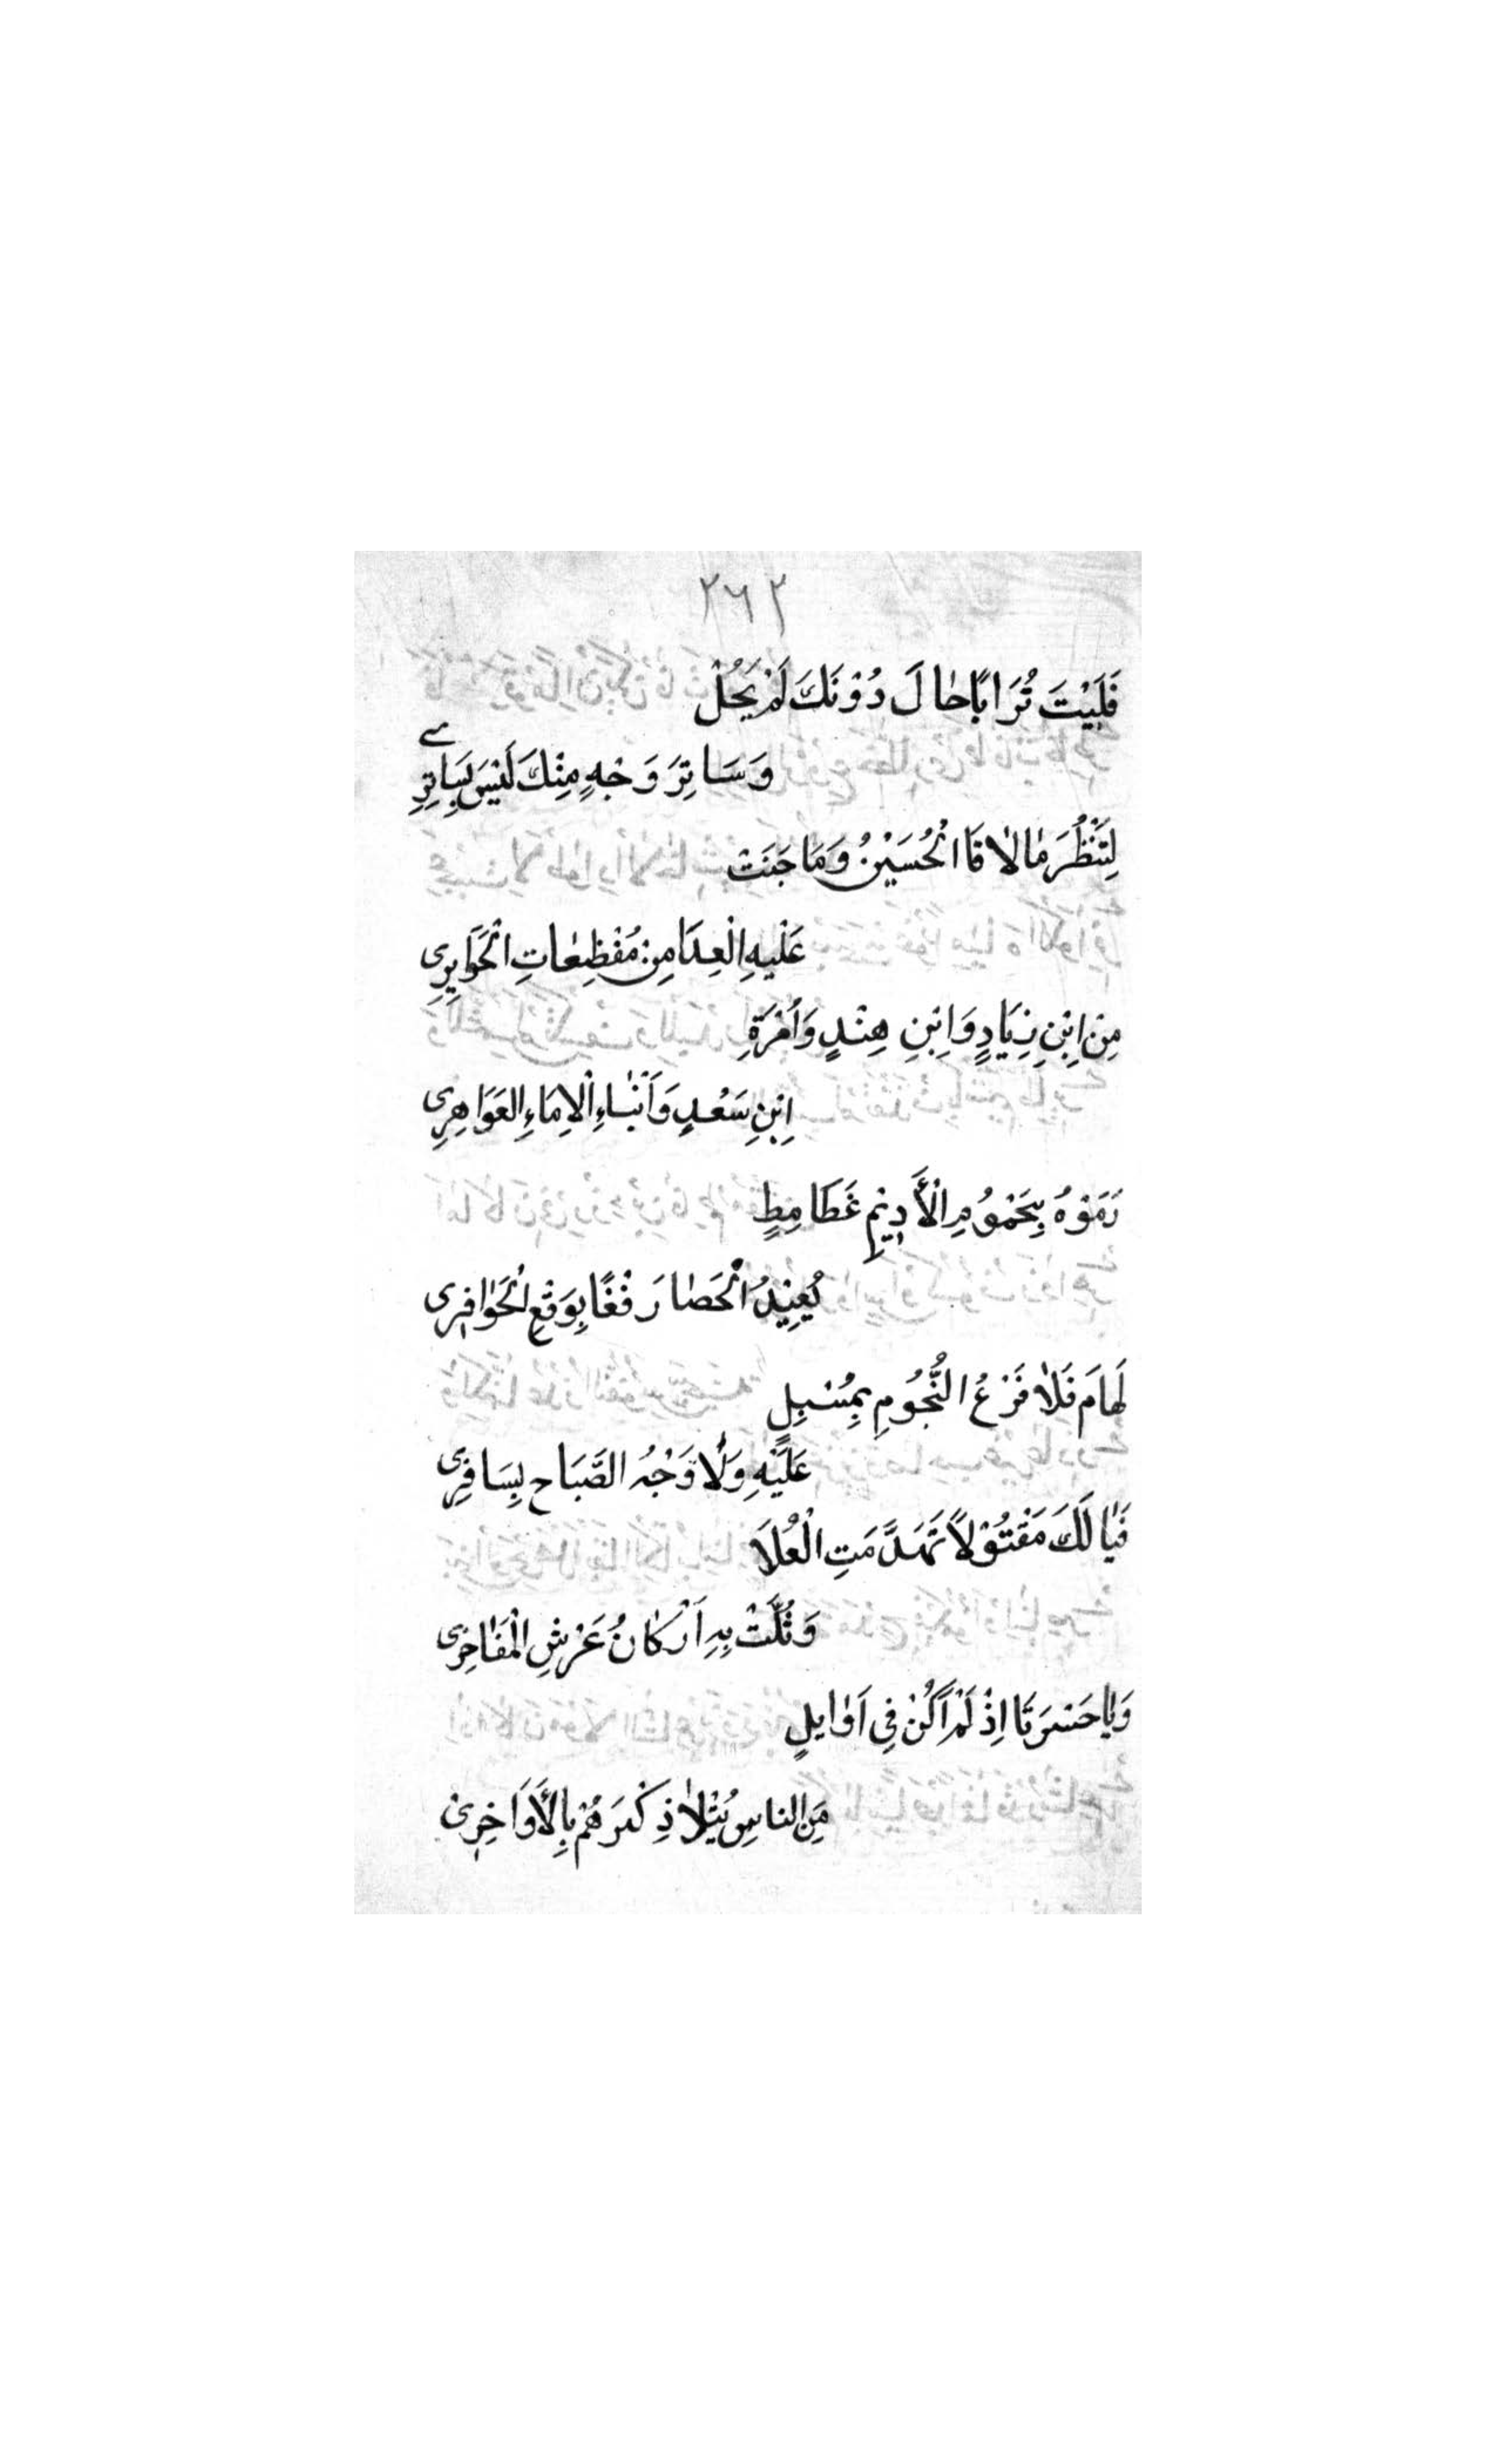 ٢٦٢
فَلَيْتَ تُرَابًا حَالَ دُوْنَكَ لَمْ يَحُلْ
وَسَاتِرَ وَجْهٍ مِنْكَ لَيْسَ بِسَاتِرِے
لِتَنْظُرَ مَا لَاقَا الْحُسَيْنُ وَمَا جَنَتْ
عَلَيْهِ الْعِدَا مِنْ مُفْظِعَاتِ الْجَوَايِرِى
مِنْ اِبْنِ زِيَادٍ وَاِبْنِ هِنْدٍ وَاُمْرَةِ
اِبْنِ سَعْدٍ وَاَبْنَاءِ الْاِمَاءِ العَوَاهِرِى
رَمَوْهُ بِيَحْمُوْمِ الْأَدِيْمِ غَطَامِطٍ
يُعِيْدُ الْحَصَا رَفْغًا بِوَقْعِ الْحَوَافِرِى
لَهَامَ فَلَا فَرْعُ النُّجُوْمِ بِمُسْبِلٍ
عَلَيْهِ وَلَا وَجْهُ الصَّبَاحِ بِسَافِرِى
فَيَا لَكَ مَقْتُوْلًا تَهَدَّمَتِ الْعُلَا
وَثُلَّتْ بِهِ اَرْكَانُ عَرْشِ الْمَفَاخِرِى
وَيَا حَسْرَتَا اِذْ لَمْ اَكُنْ فِي اَوَايلٍ
مِنَ الناسِ يُتْلَا ذِكْرَهُمْ بِالْأَوَاخِرِىْ